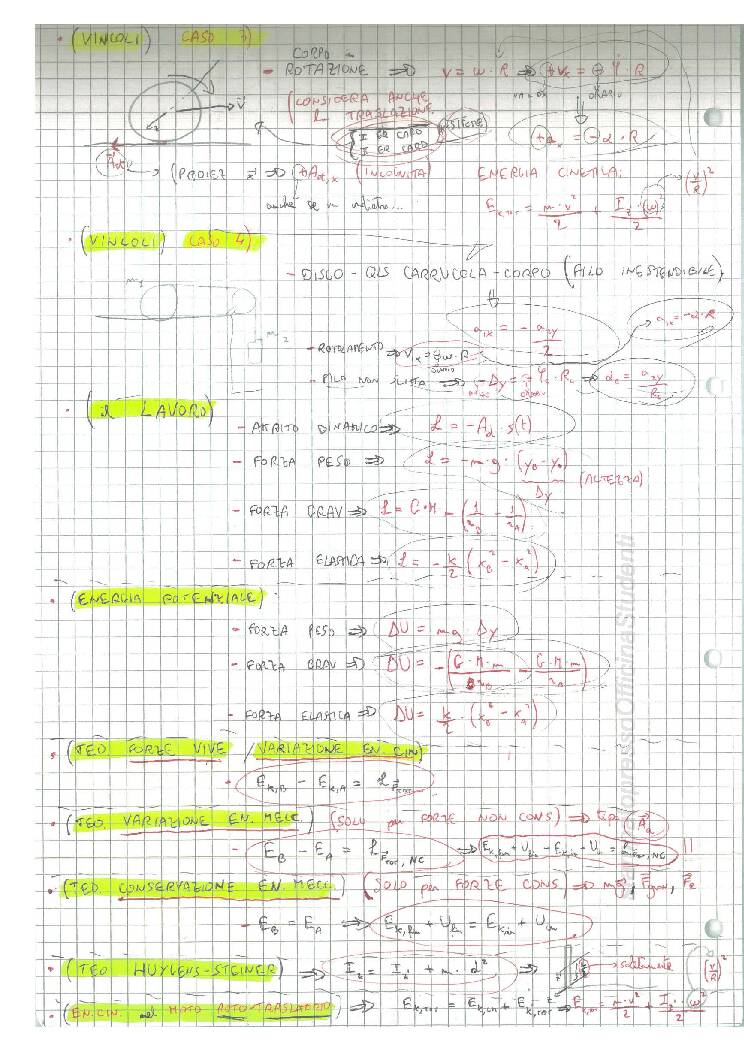 • (VINCOLI) CASO 3)
CORPO -
- ROTAZIONE ⇒ v = ω · R ⇒ +vx = ⊖ φ̇ · R
(CONSIDERA ANCHE
L TRASLAZIONE
ORARIO
{ I ER CARD
{ I ER CARD
SISTEMA
+ax = ⊖ α · R
(PROIEZ x̄ ⇒ +Aat,x (INCOGNITA)
anche se va indietro...
ENERGIA CINETICA:
Ek,tot = m·v²/2 + Iz·(ω)²/2
(v/R)²
• (VINCOLI) CASO 4)
- DISCO - CARRUCOLA - CORPO (FILO INESTENDIBILE)
m1
m2
a1x = - a2y/2
a1x = -α·R
- ROTOLAMENTO ⇒ Vx = ω·R
- FILO NON SLITTA ⇒ -Δy = φc · Rc ⇒ αc = a2y/Rc
• (il LAVORO)
- ATTRITO DINAMICO ⇒ L = -Ad · s(t)
- FORZA PESO ⇒ L = -m·g·(yB-yA)
Δy
(ALTEZZA)
- FORZA GRAV ⇒ L = G·M (1/rB - 1/rA)
- FORZA ELASTICA ⇒ L = -k/2 (xB² - xA²)
• (ENERGIA POTENZIALE)
- FORZA PESO ⇒ ΔU = mg · Δy
- FORZA GRAV ⇒ ΔU = -(G·M·m/rB - G·M·m/rA)
- FORZA ELASTICA ⇒ ΔU = k/2 · (xB² - xA²)
• (TEO. FORZE VIVE / VARIAZIONE EN. CIN)
- Ek,B - Ek,A = L Ftot
• (TEO. VARIAZIONE EN. MECC) (SOLO per FORZE NON CONS) ⇒ Ad
- EB - EA = L Ftot, NC ⇒ Ek,fin + Ufin - Ek,in - Uin = L Ftot, NC !!
• (TEO. CONSERVAZIONE EN. MECC) (SOLO per FORZE CONS) ⇒ mg, Fgrav, Fe
- EB = EA ⇒ Ek,fin + Ufin = Ek,in + Uin
• (TEO HUYGENS-STEINER) ⇒ Iz = Iz' + m · d² ⇒ solitamente (v/R)²
• (EN. CIN. nel MOTO ROTO-TRASLATORIO) ⇒ Ek,tot = Ek,cm + Ek,rot ⇒ Ek,tot = m·v²/2 + Iz·(ω)²/2